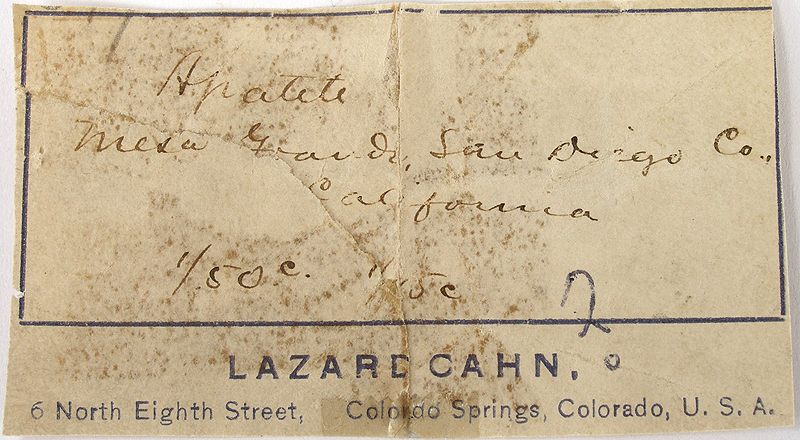 Apatite
Mesa Grande, San Diego Co.,
California
1/50c. 1/15c
2
LAZARD CAHN,
6 North Eighth Street, Colorado Springs, Colorado, U. S. A.